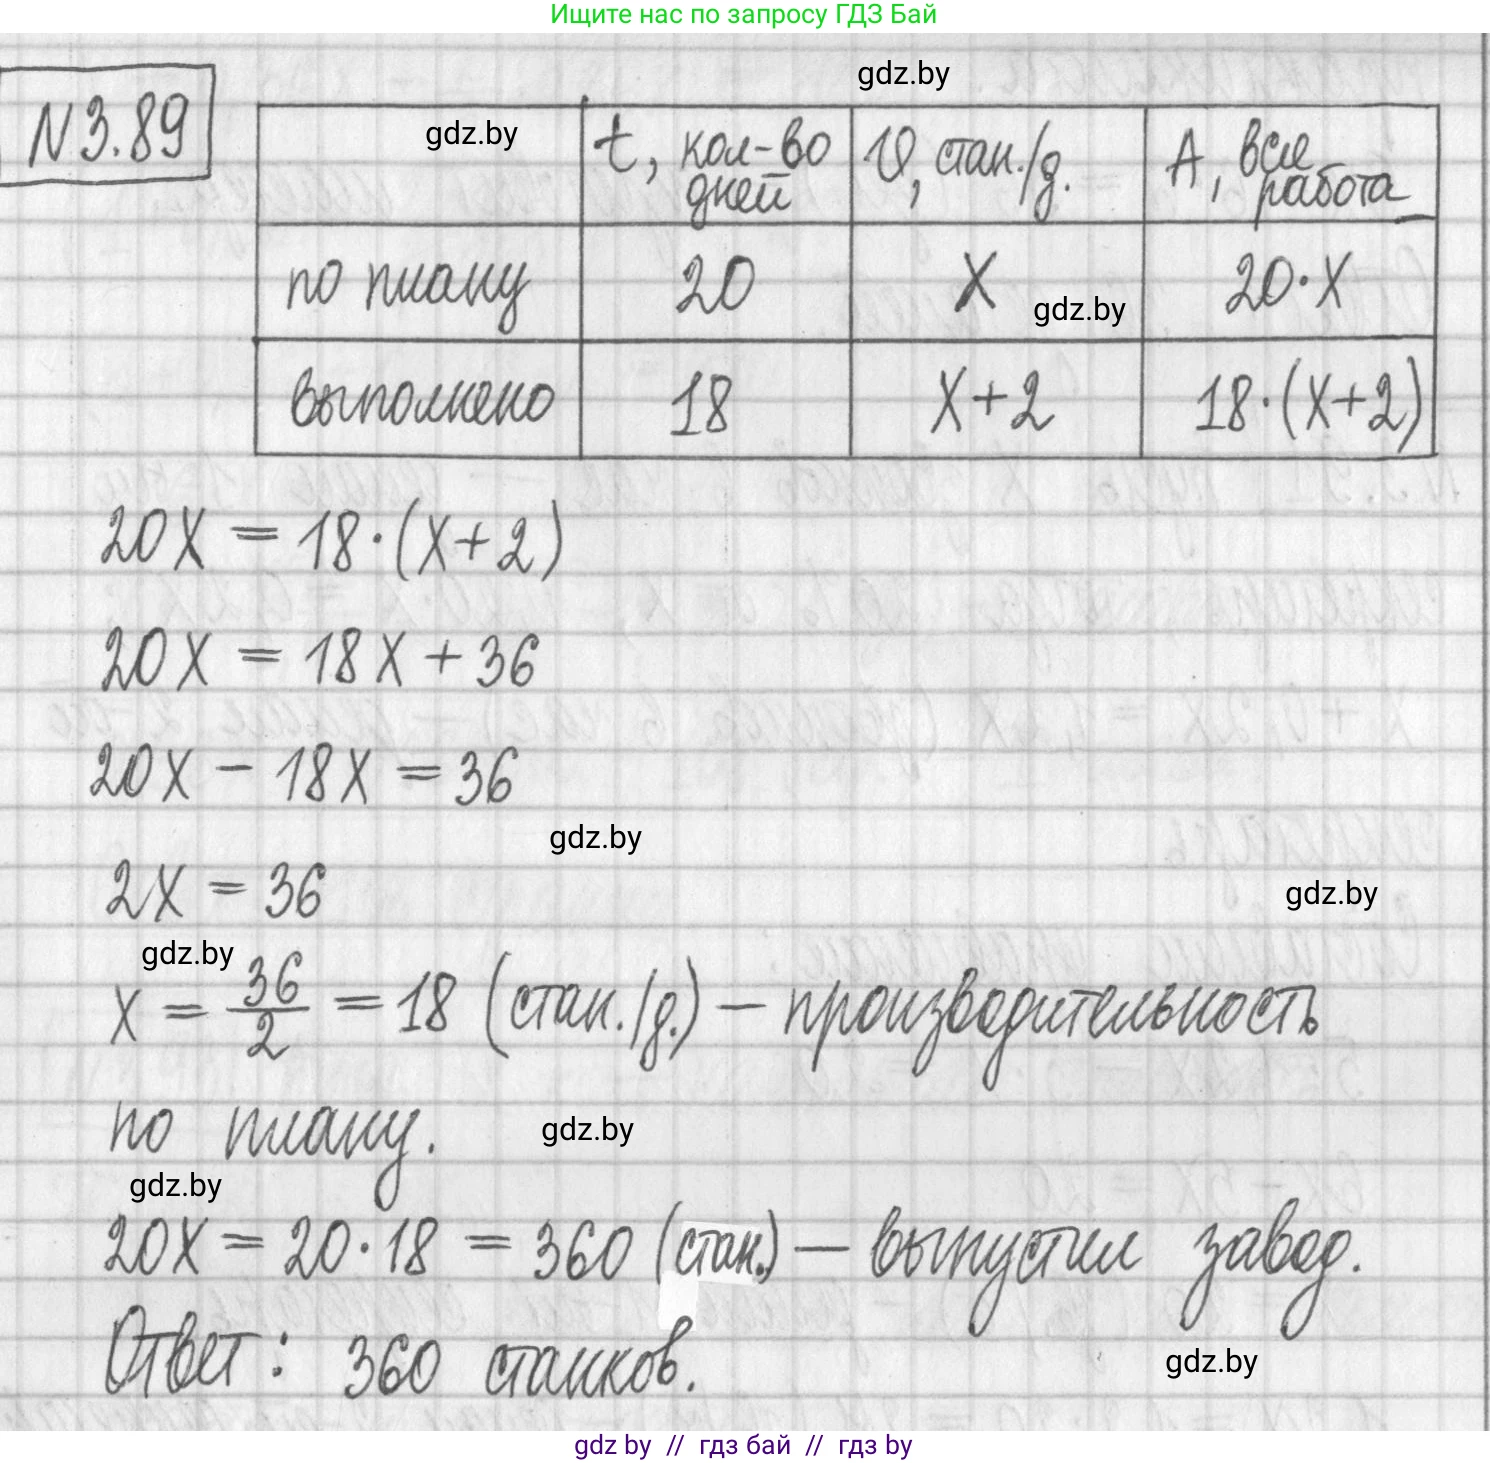 Ищите нас по запросу ГДЗ Бай
gdz.by
N3.89
gdz.by
t, кол-во дней
V, стан./д.
A, вся работа
по плану
20
X
gdz.by
20·X
выполнено
18
X+2
18·(X+2)
20X = 18·(X+2)
20X = 18X + 36
20X - 18X = 36
gdz.by
2X = 36
gdz.by
gdz.by
X = 36/2 = 18 (стан./д.) — производительность
по плану.
gdz.by
gdz.by
20X = 20·18 = 360 (стан.) — выпустил завод.
Ответ: 360 станков.
gdz.by
gdz by // гдз бай // гдз by